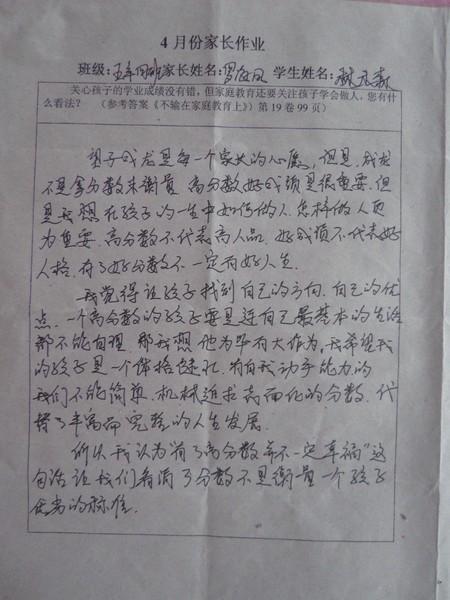 4月份家长作业
班级:五年四班家长姓名: 学生姓名:
关心孩子的学业成绩没有错,但家庭教育还要关注孩子学会做人,您有什
么看法? (参考答案《不输在家庭教育上》)第19卷99页)
望子成龙是每一个家长的心愿,但是,成龙
不是拿分数来衡量,高分数好成绩是很重要,但
是我想在孩子的一生中如何做人怎样做人更
为重要,高分数不代表高人品,好成绩不代表好
人格,有了好分数不一定有好人生.
我觉得让孩子找到自己的方向,自己的优
点.一个高分数的孩子要是连自己最基本的生活
都不能自理,那我想他为毕有大作为,我希望我
的孩子是一个体格健全,有自我动手能力的
我们不能简单,机械追求表面化的分数,代
替了丰富而完整的人生发展.
所以我认为“有了高分数并不一定幸福”这
句话让我们看清了分数不是衡量一个孩子
优劣的标准.